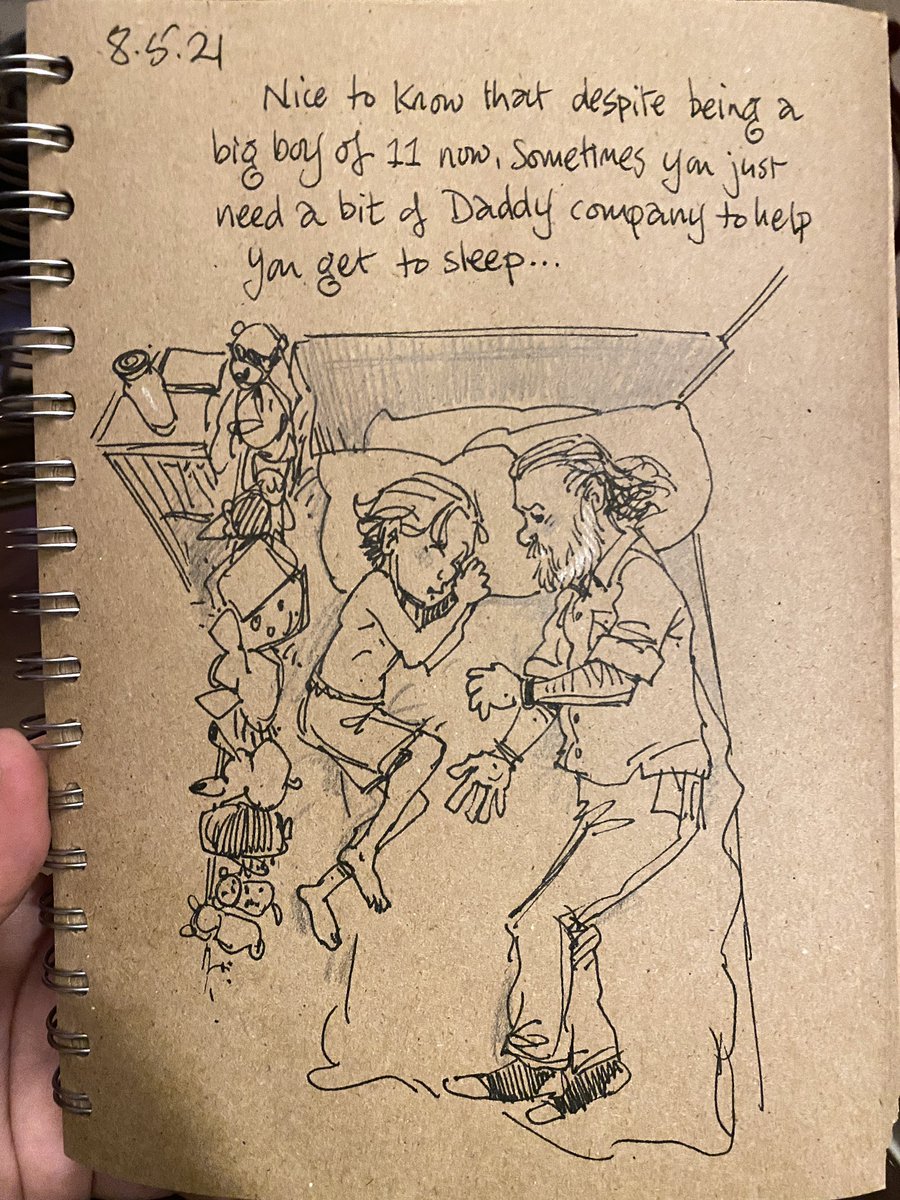 8.5.21
Nice to know that despite being a
big boy of 11 now, Sometimes you just
need a bit of Daddy company to help
you get to sleep...